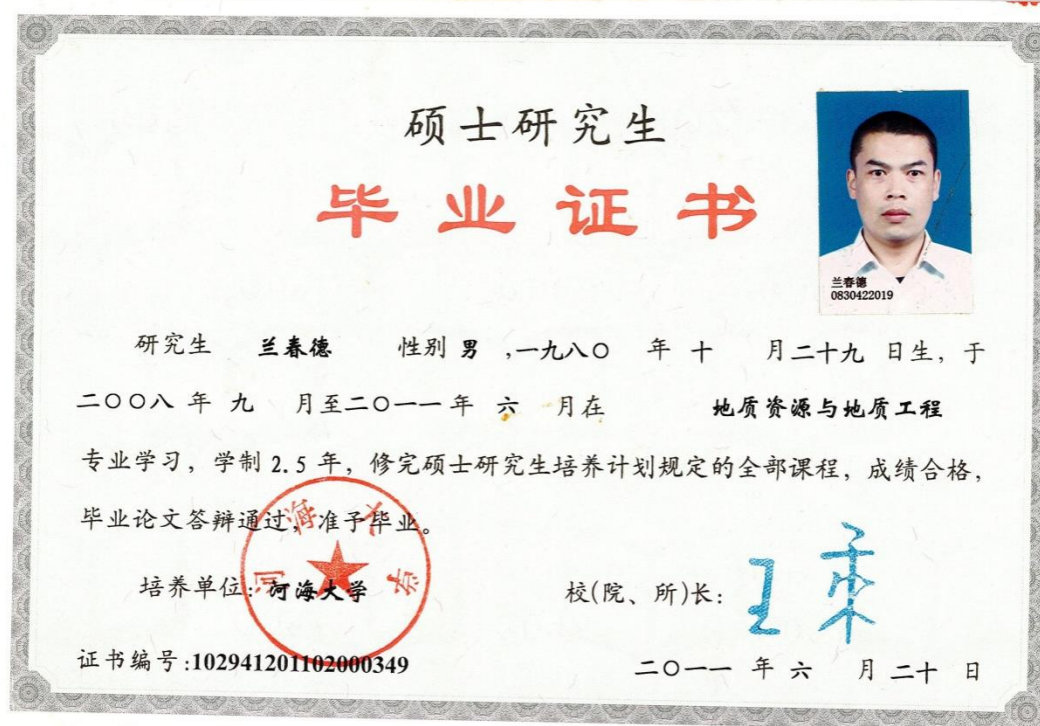 硕士研究生
毕业证书
兰春德
0830422019
研究生 兰春德 性别 男 ,一九八〇 年 十 月二十九 日生, 于
二〇〇八 年 九 月至二〇一一年 六 月在 地质资源与地质工程
专业学习, 学制 2.5 年, 修完硕士研究生培养计划规定的全部课程, 成绩合格,
毕业论文答辩通过, 准予毕业。
河海大学
培养单位: 河海大学
校(院、所)长:
证书编号:102941201102000349
二〇一一 年 六 月 二十 日